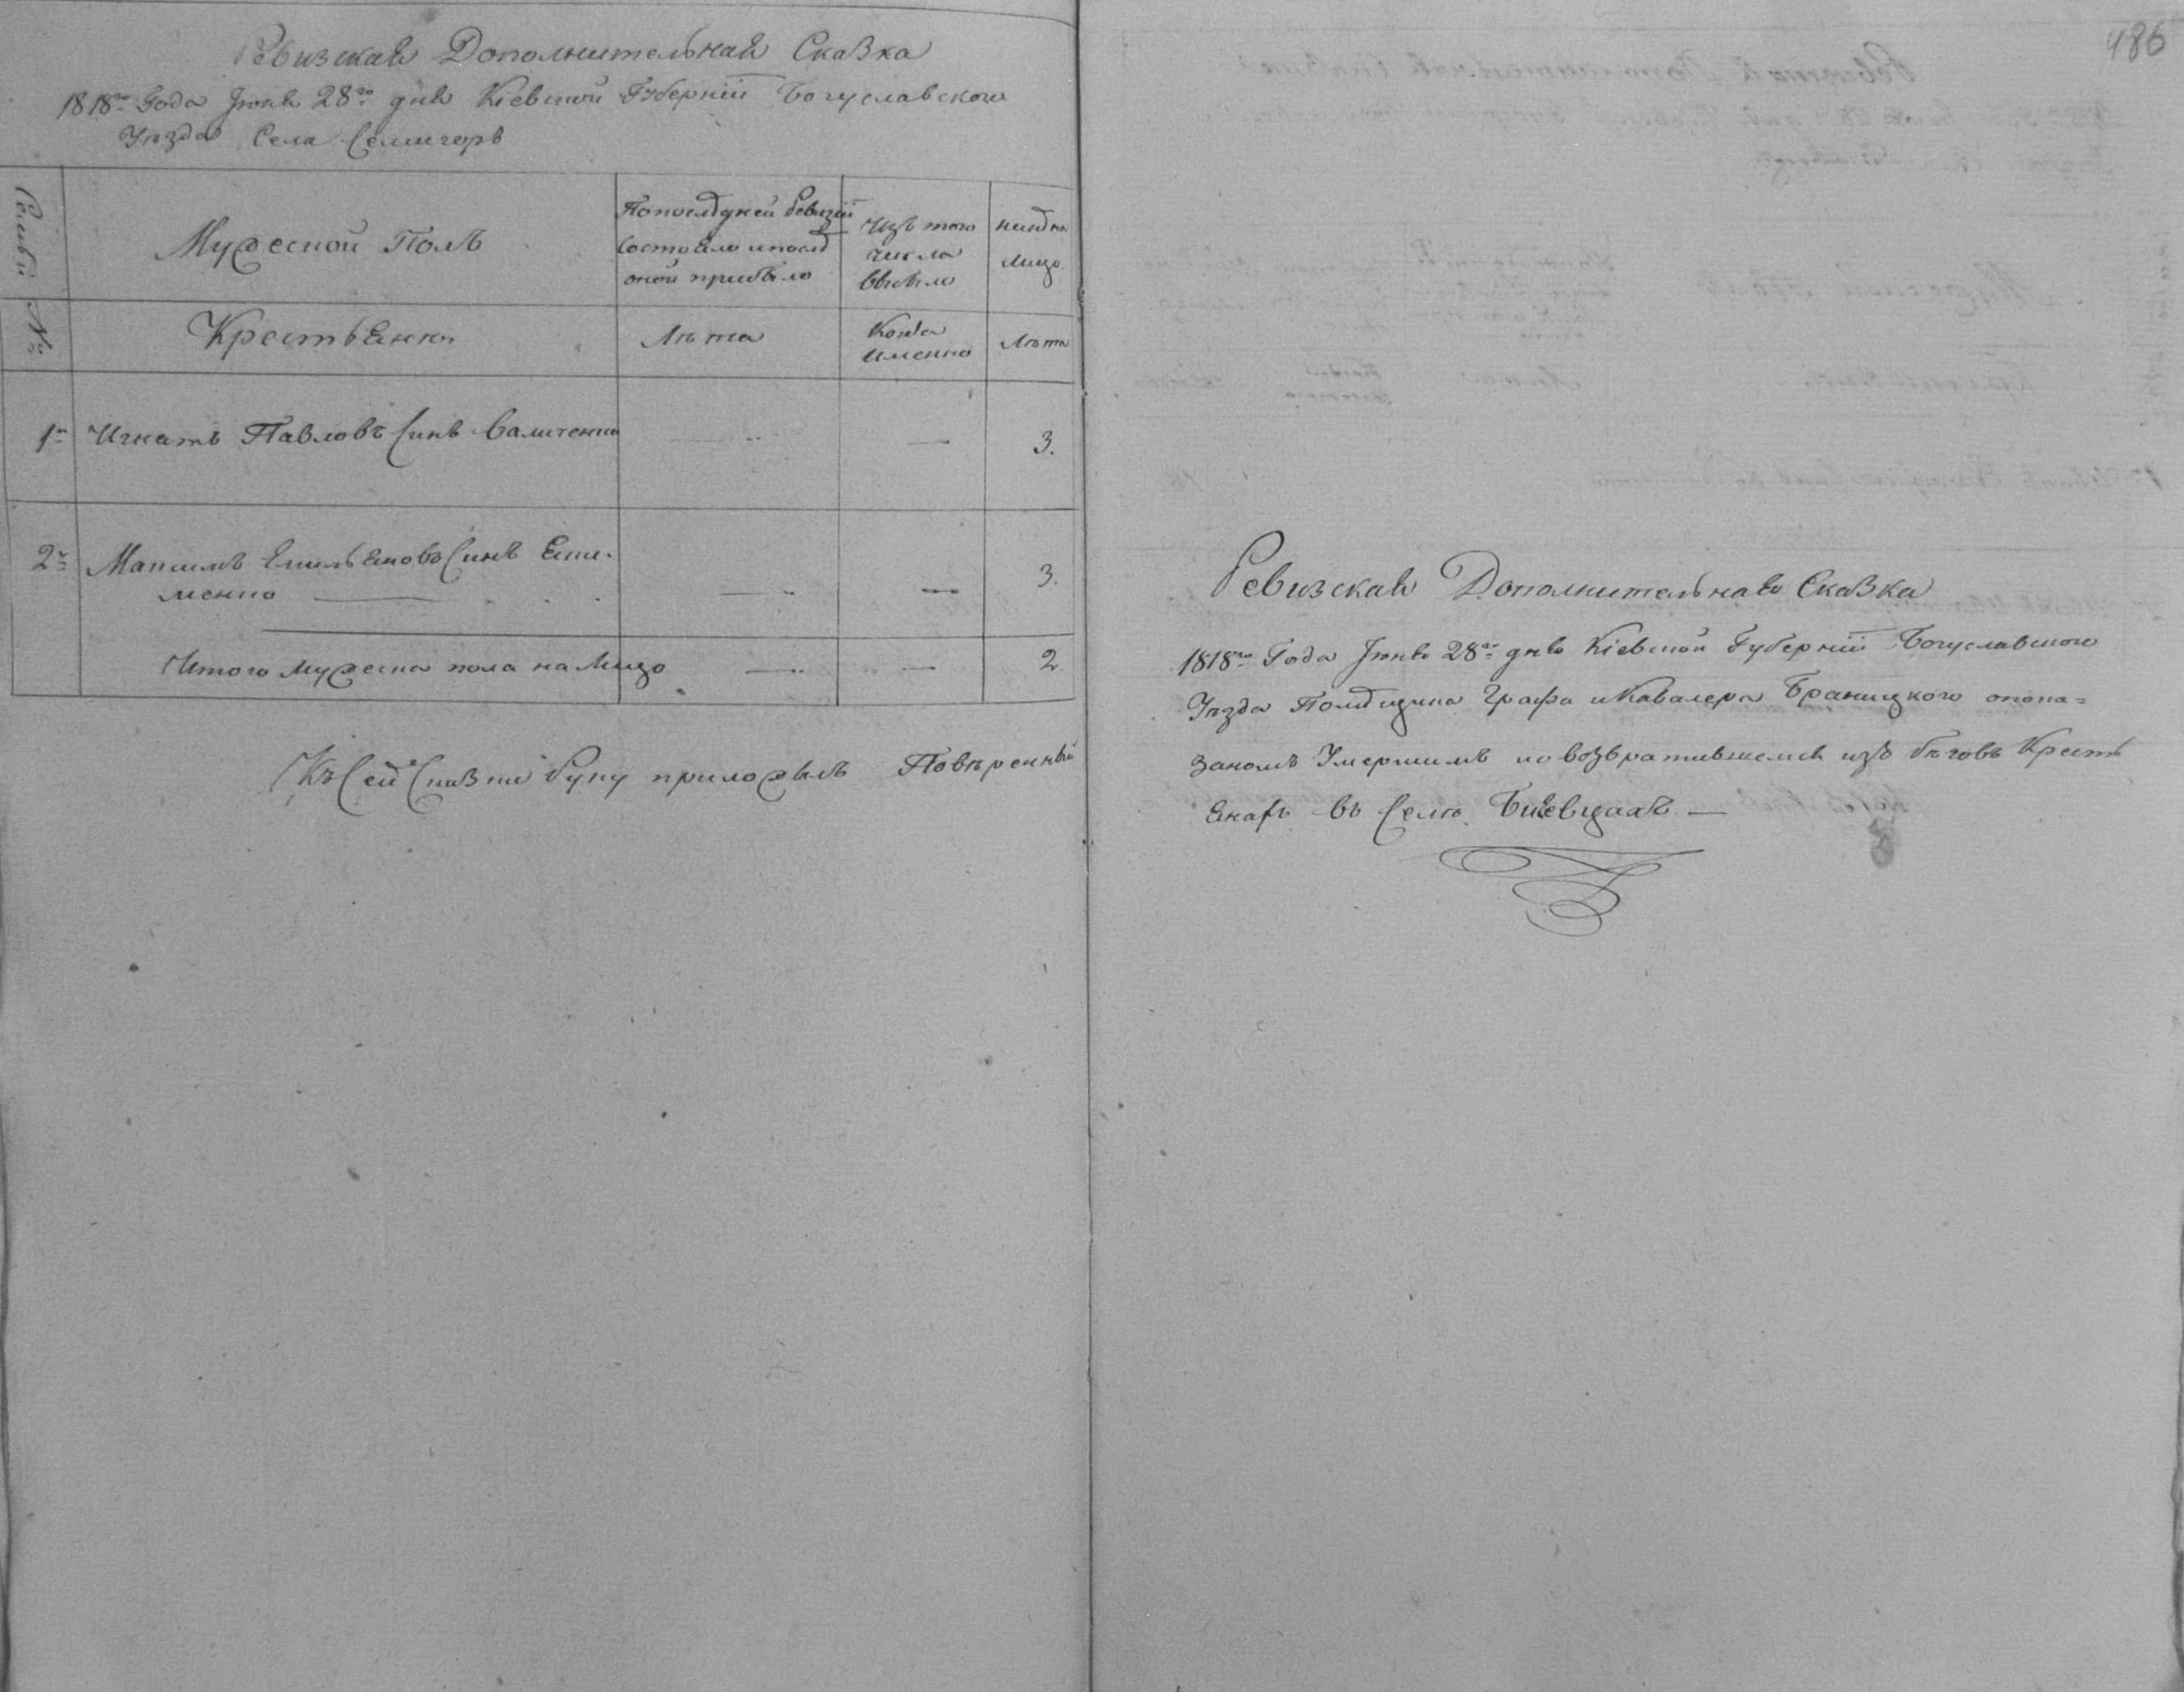 Ревизская Дополнительная Сказка
1818го Года Июня 28го дня Кіевской Губерніи Богуславского
Уезда Села Семигоръ
Семьи №
Мужеской Полъ
По последней Ревизіи
состояло и после
оной прибыло
Изъ того
числа
выбыло
ныне на
лицо
Крестьяне
Лета
Когда
именно
Лета
1й Игнатъ Павловъ Синъ Саличенко 3.
2й Максимъ Емельяновъ Синъ Еме-
менко 3.
Итого мужеска пола на Лицо 2
Къ Сей Сказки Руку приложилъ Повъренный
486
Ревизская Дополнительная Сказка
1818го Года Июня 28го дня Кіевской Губерніи Богуславского
Уезда Помещика Графа и Кавалера Браницкого о пока=
заномъ Умершимъ но возвратившемся изъ беговъ Кресть
янахъ въ Селе Биевцахъ —